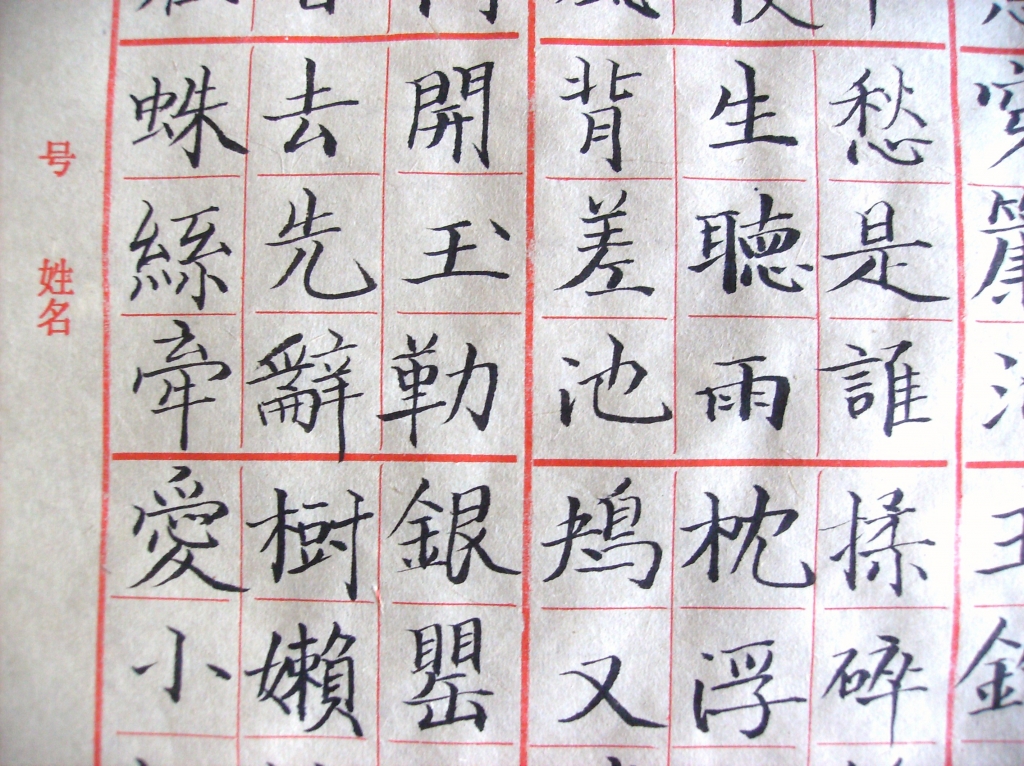 愁是誰揉碎
生聽雨枕浮
背差池鴂又
開玉勒銀罌
去先辭樹嬾
蛛絲牽愛小
号 姓名